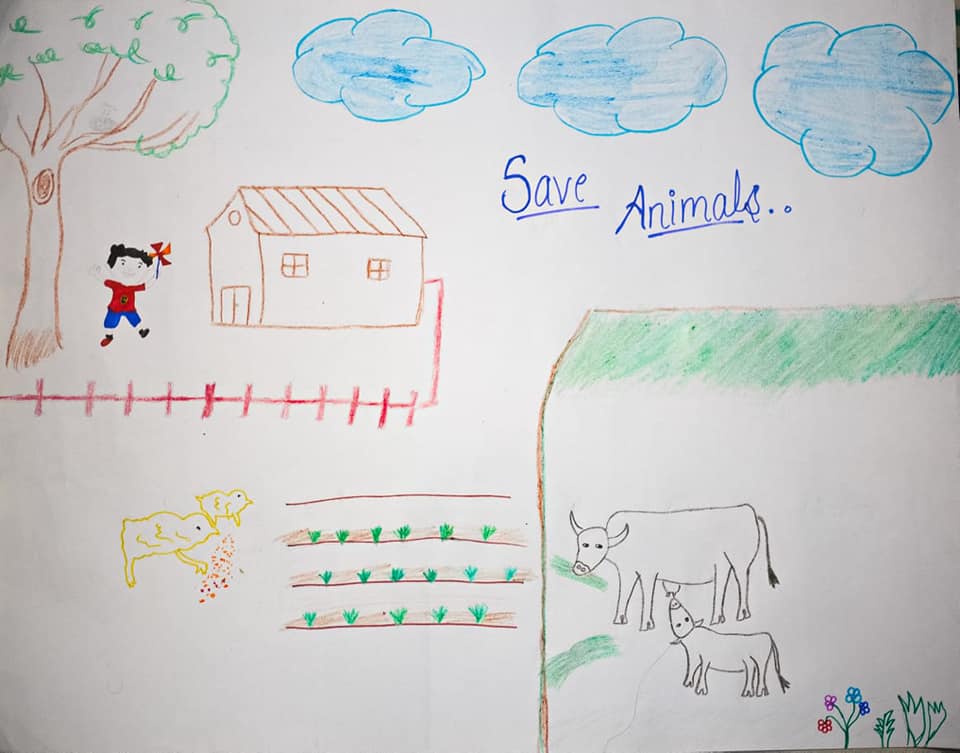 Save Animals..